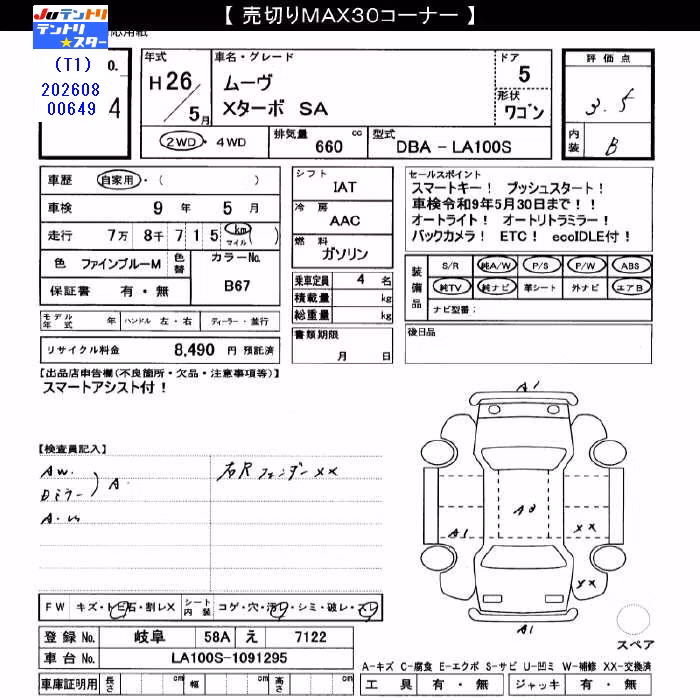 【 売切りMAX30コーナー 】
JUテントリ
テントリ★スター
応用紙
(T1)
202608
00649
o.
4
年式
H26/5月
車名・グレード
ムーヴ
Xターボ SA
ドア
5
形状
ワゴン
評価点
3.5
内装
B
2WD・4WD
排気量
660
cc
型式
DBA-LA100S
車歴
自家用・( )
車検
9 年 5 月
走行
7万 8千 7 1 5 km マイル ( )
色
ファインブルーM
色替
カラーNo.
B67
保証書
有・無
モデル年式 年
ハンドル 左・右
ディーラー・並行
リサイクル料金 8,490 円 預託済
シフト
IAT
冷房
AAC
燃料
ガソリン
乗車定員 4 名
積載量 kg
総重量 kg
書類期限
月 日
セールスポイント
スマートキー! プッシュスタート!
車検令和9年5月30日まで!!
オートライト! オートリトラミラー!
バックカメラ! ETC! ecoIDLE付!
装備品
S/R 純A/W P/S P/W ABS
純TV 純ナビ 革シート 外ナビ エアB
ナビ型番:
後日品
【出品店申告欄(不良箇所・欠品・注意事項等)】
スマートアシスト付!
【検査員記入】
AW.
Dミラー ) A
右Rフェンダー XX
A1
A1
A2
XX
XX
A1
FW キズ・トビ石・割レX
シート内装 コゲ・穴・汚レ・シミ・破レ・スレ
登録No. 岐阜 58A え 7122
車台No. LA100S-1091295
車庫証明用 長さ cm 幅 cm 高さ cm
スペア
A-キズ C-腐食 E-エクボ S-サビ U-凹ミ W-補修 XX-交換済
工具 有・無 ジャッキ 有・無